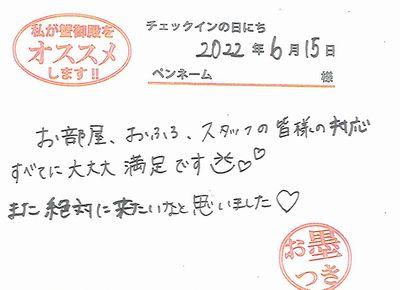 私が蟹御殿を
オススメ
します!!
チェックインの日にち
2022年6月15日
ペンネーム 様
お部屋、おふろ、スタッフの皆様の対応
すべてに大大大満足です♡♡
また絶対に来たいなと思いました♡
お墨
つき